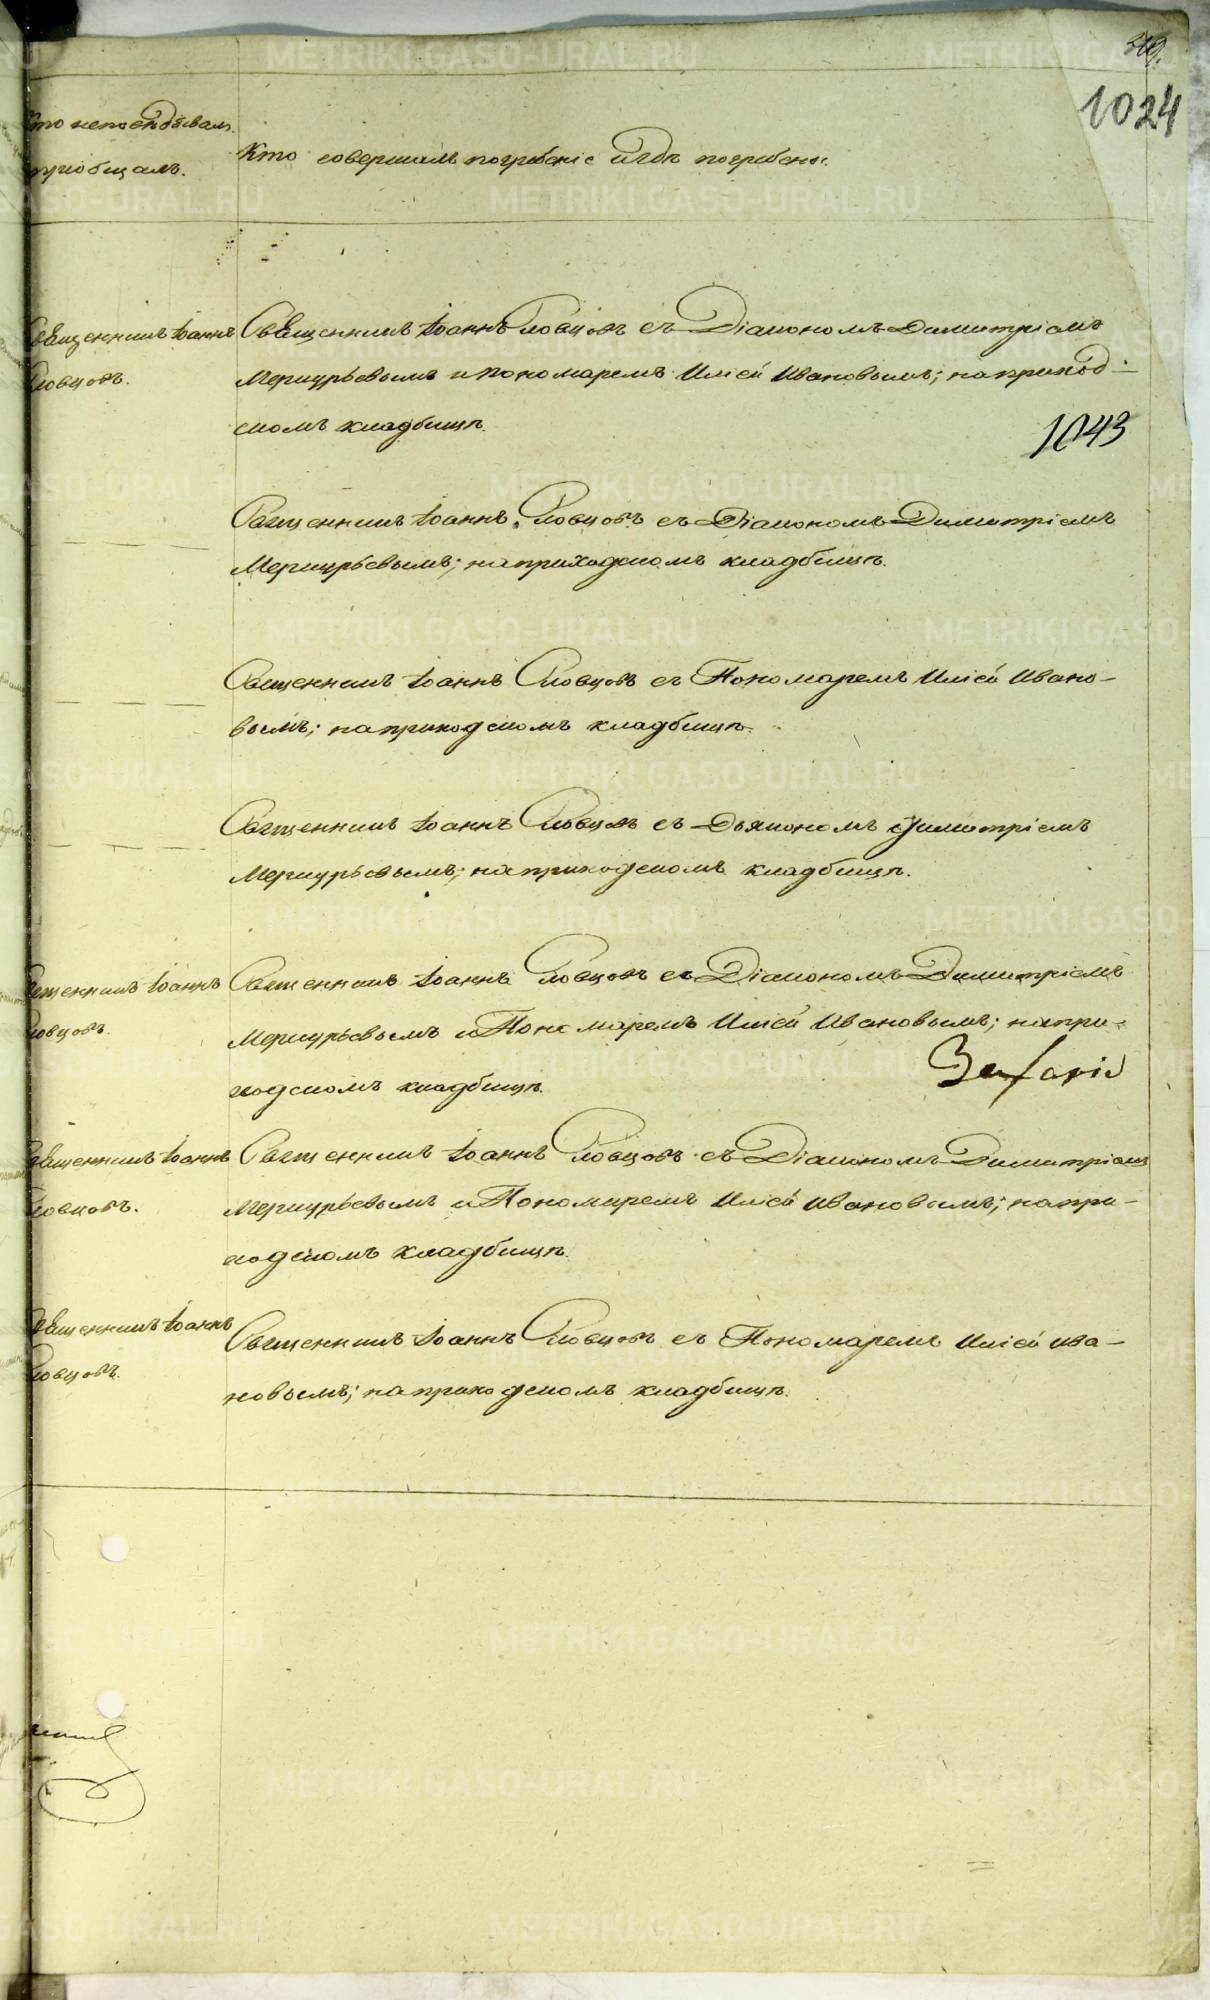 1024
Кто исповѣдывалъ
приобщалъ.
Кто совершалъ погребеніе и гдѣ погребены.
Священникъ Іоаннъ
Словцовъ.
Священникъ Іоаннъ Словцовъ съ Діакономъ Димитріемъ
Меркурьевымъ и пономаремъ Иліей Ивановымъ; на приход-
скомъ кладбищѣ.
1043
Священникъ Іоаннъ Словцовъ съ Діакономъ Димитріемъ
Меркурьевымъ; на приходскомъ кладбищѣ.
Священникъ Іоаннъ Словцовъ съ Пономаремъ Иліей Ивано-
вымъ; на приходскомъ кладбищѣ.
Священникъ Іоаннъ Словцовъ съ Дьякономъ Димитріемъ
Меркурьевымъ; на приходскомъ кладбищѣ.
Священникъ Іоаннъ
Словцовъ.
Священникъ Іоаннъ Словцовъ съ Діакономъ Димитріемъ
Меркурьевымъ и Пономаремъ Иліей Ивановымъ; на при-
ходскомъ кладбищѣ.
Священникъ Іоаннъ
Словцовъ.
Священникъ Іоаннъ Словцовъ съ Діакономъ Димитріемъ
Меркурьевымъ и Пономаремъ Иліей Ивановымъ; на при-
ходскомъ кладбищѣ.
Священникъ Іоаннъ
Словцовъ.
Священникъ Іоаннъ Словцовъ съ Пономаремъ Иліей Ива-
новымъ; на приходскомъ кладбищѣ.
METRIKI.GASO-URAL.RU